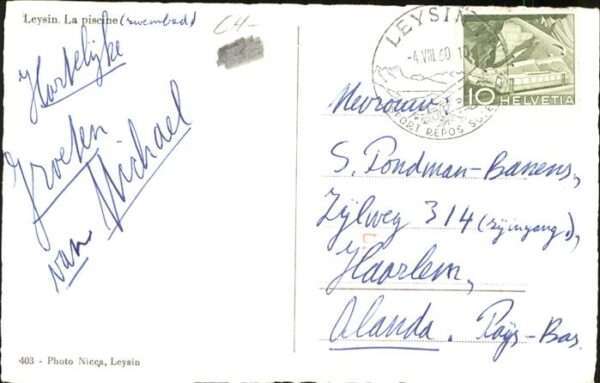 Leysin. La piscine (zwembad)
C4-
Hartelijke
Groeten
van Michael
403 - Photo Nicca, Leysin
LEYSIN
-4.VIII.60.10
SPORT REPOS SOLEIL
10 HELVETIA
Mevrouw
S. Pondman-Banens,
Zijlweg 314 (zijingang),
Haarlem,
Olanda. Pays-Bas.